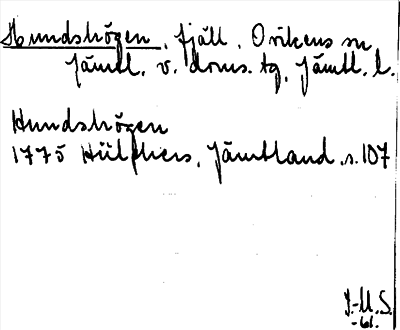 Hundshögen, fjäll, Ovikens sn,
Jämtl. v. doms. tg, Jämtl. l.
Hundshögen
1775 Hülphers, Jämtland, s. 107
J.-U.S.
-61.